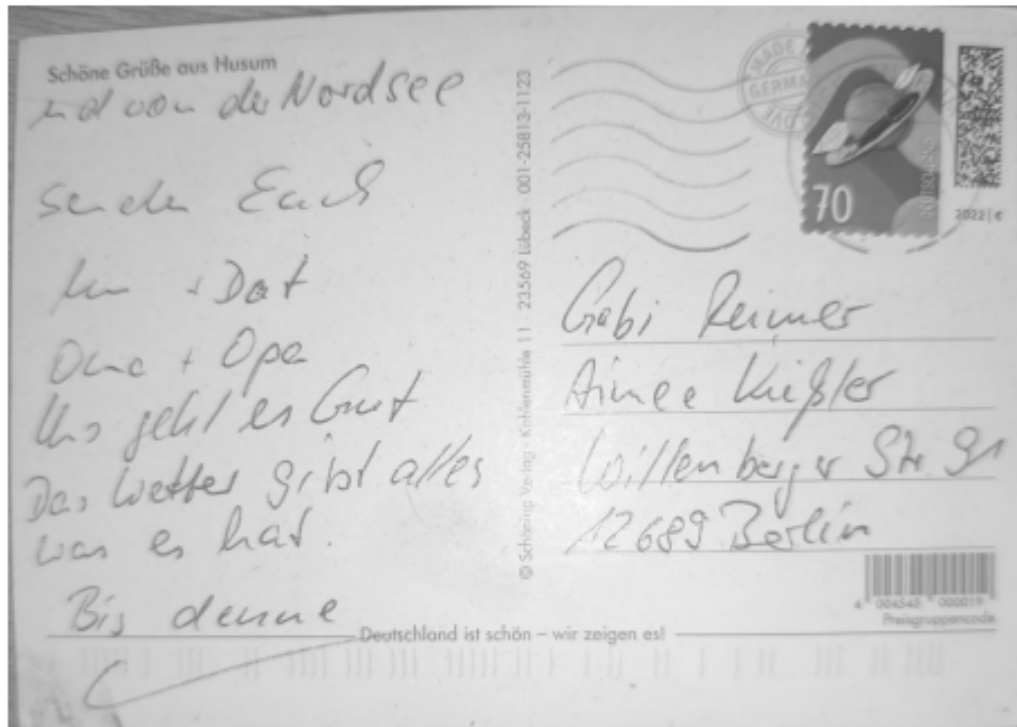 Schöne Grüße aus Husum
und von der Nordsee
senden Euch
+ Dat
Oma + Opa
Uns geht es Gut
Das Wetter gibt alles
was es hat.
Bis denne
© Schöning Verlag · Kahlenmühle 11 · 23569 Lübeck · 001-25813-1123
MADE
GERMA
LOVE
70
2022 | €
Gabi Reimer
Aimee Kießler
Wittenberger Str 91
12689 Berlin
4 004545 000019
Preisgruppencode
Deutschland ist schön – wir zeigen es!